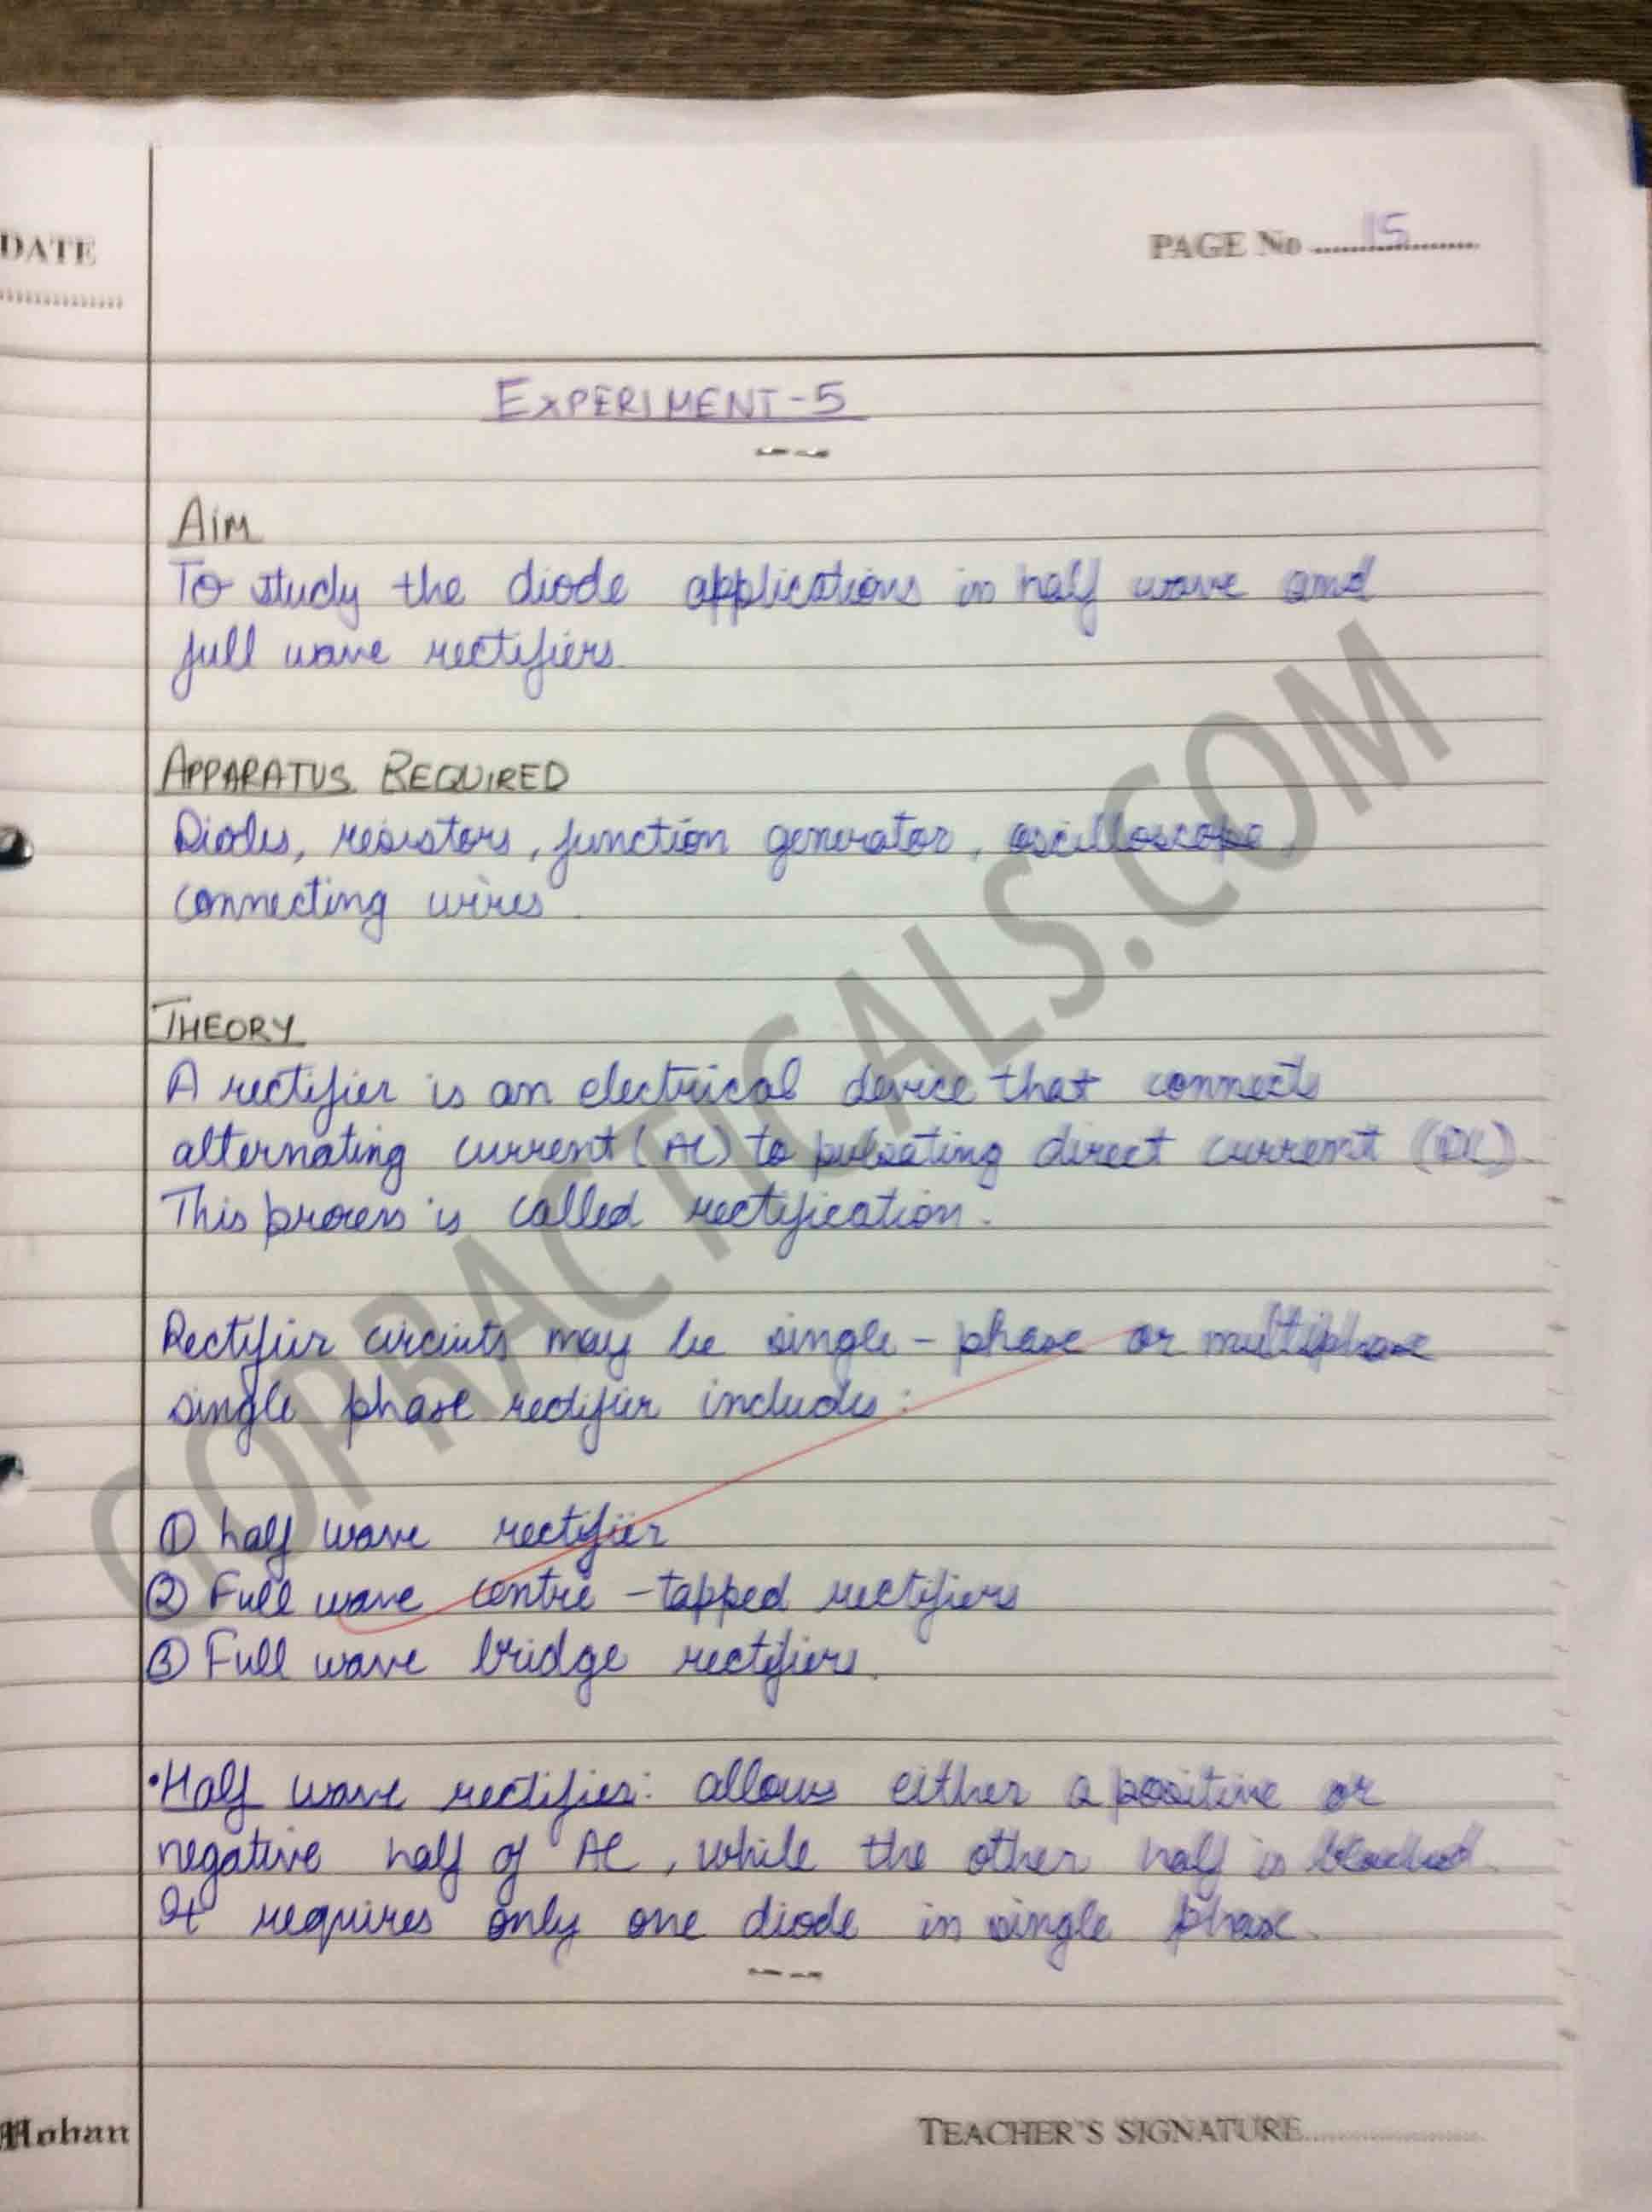 DATE
PAGE No 15
EXPERIMENT-5
AIM
To study the diode applications in half wave and
full wave rectifiers
APPARATUS REQUIRED
Diodes, resistors, function generator, oscilloscope,
connecting wires.
THEORY
A rectifier is an electrical device that connects
alternating current (AC) to pulsating direct current (DC).
This process is called rectification.
Rectifier circuits may be single-phase or multiphase
single phase rectifier includes:
① half wave rectifier
② Full wave centre-tapped rectifiers
③ Full wave bridge rectifiers.
• Half wave rectifier: allows either a positive or
negative half of AC, while the other half is blocked.
It requires only one diode in single phase.
Mohan
TEACHER'S SIGNATURE
GOPRACTICALS.COM